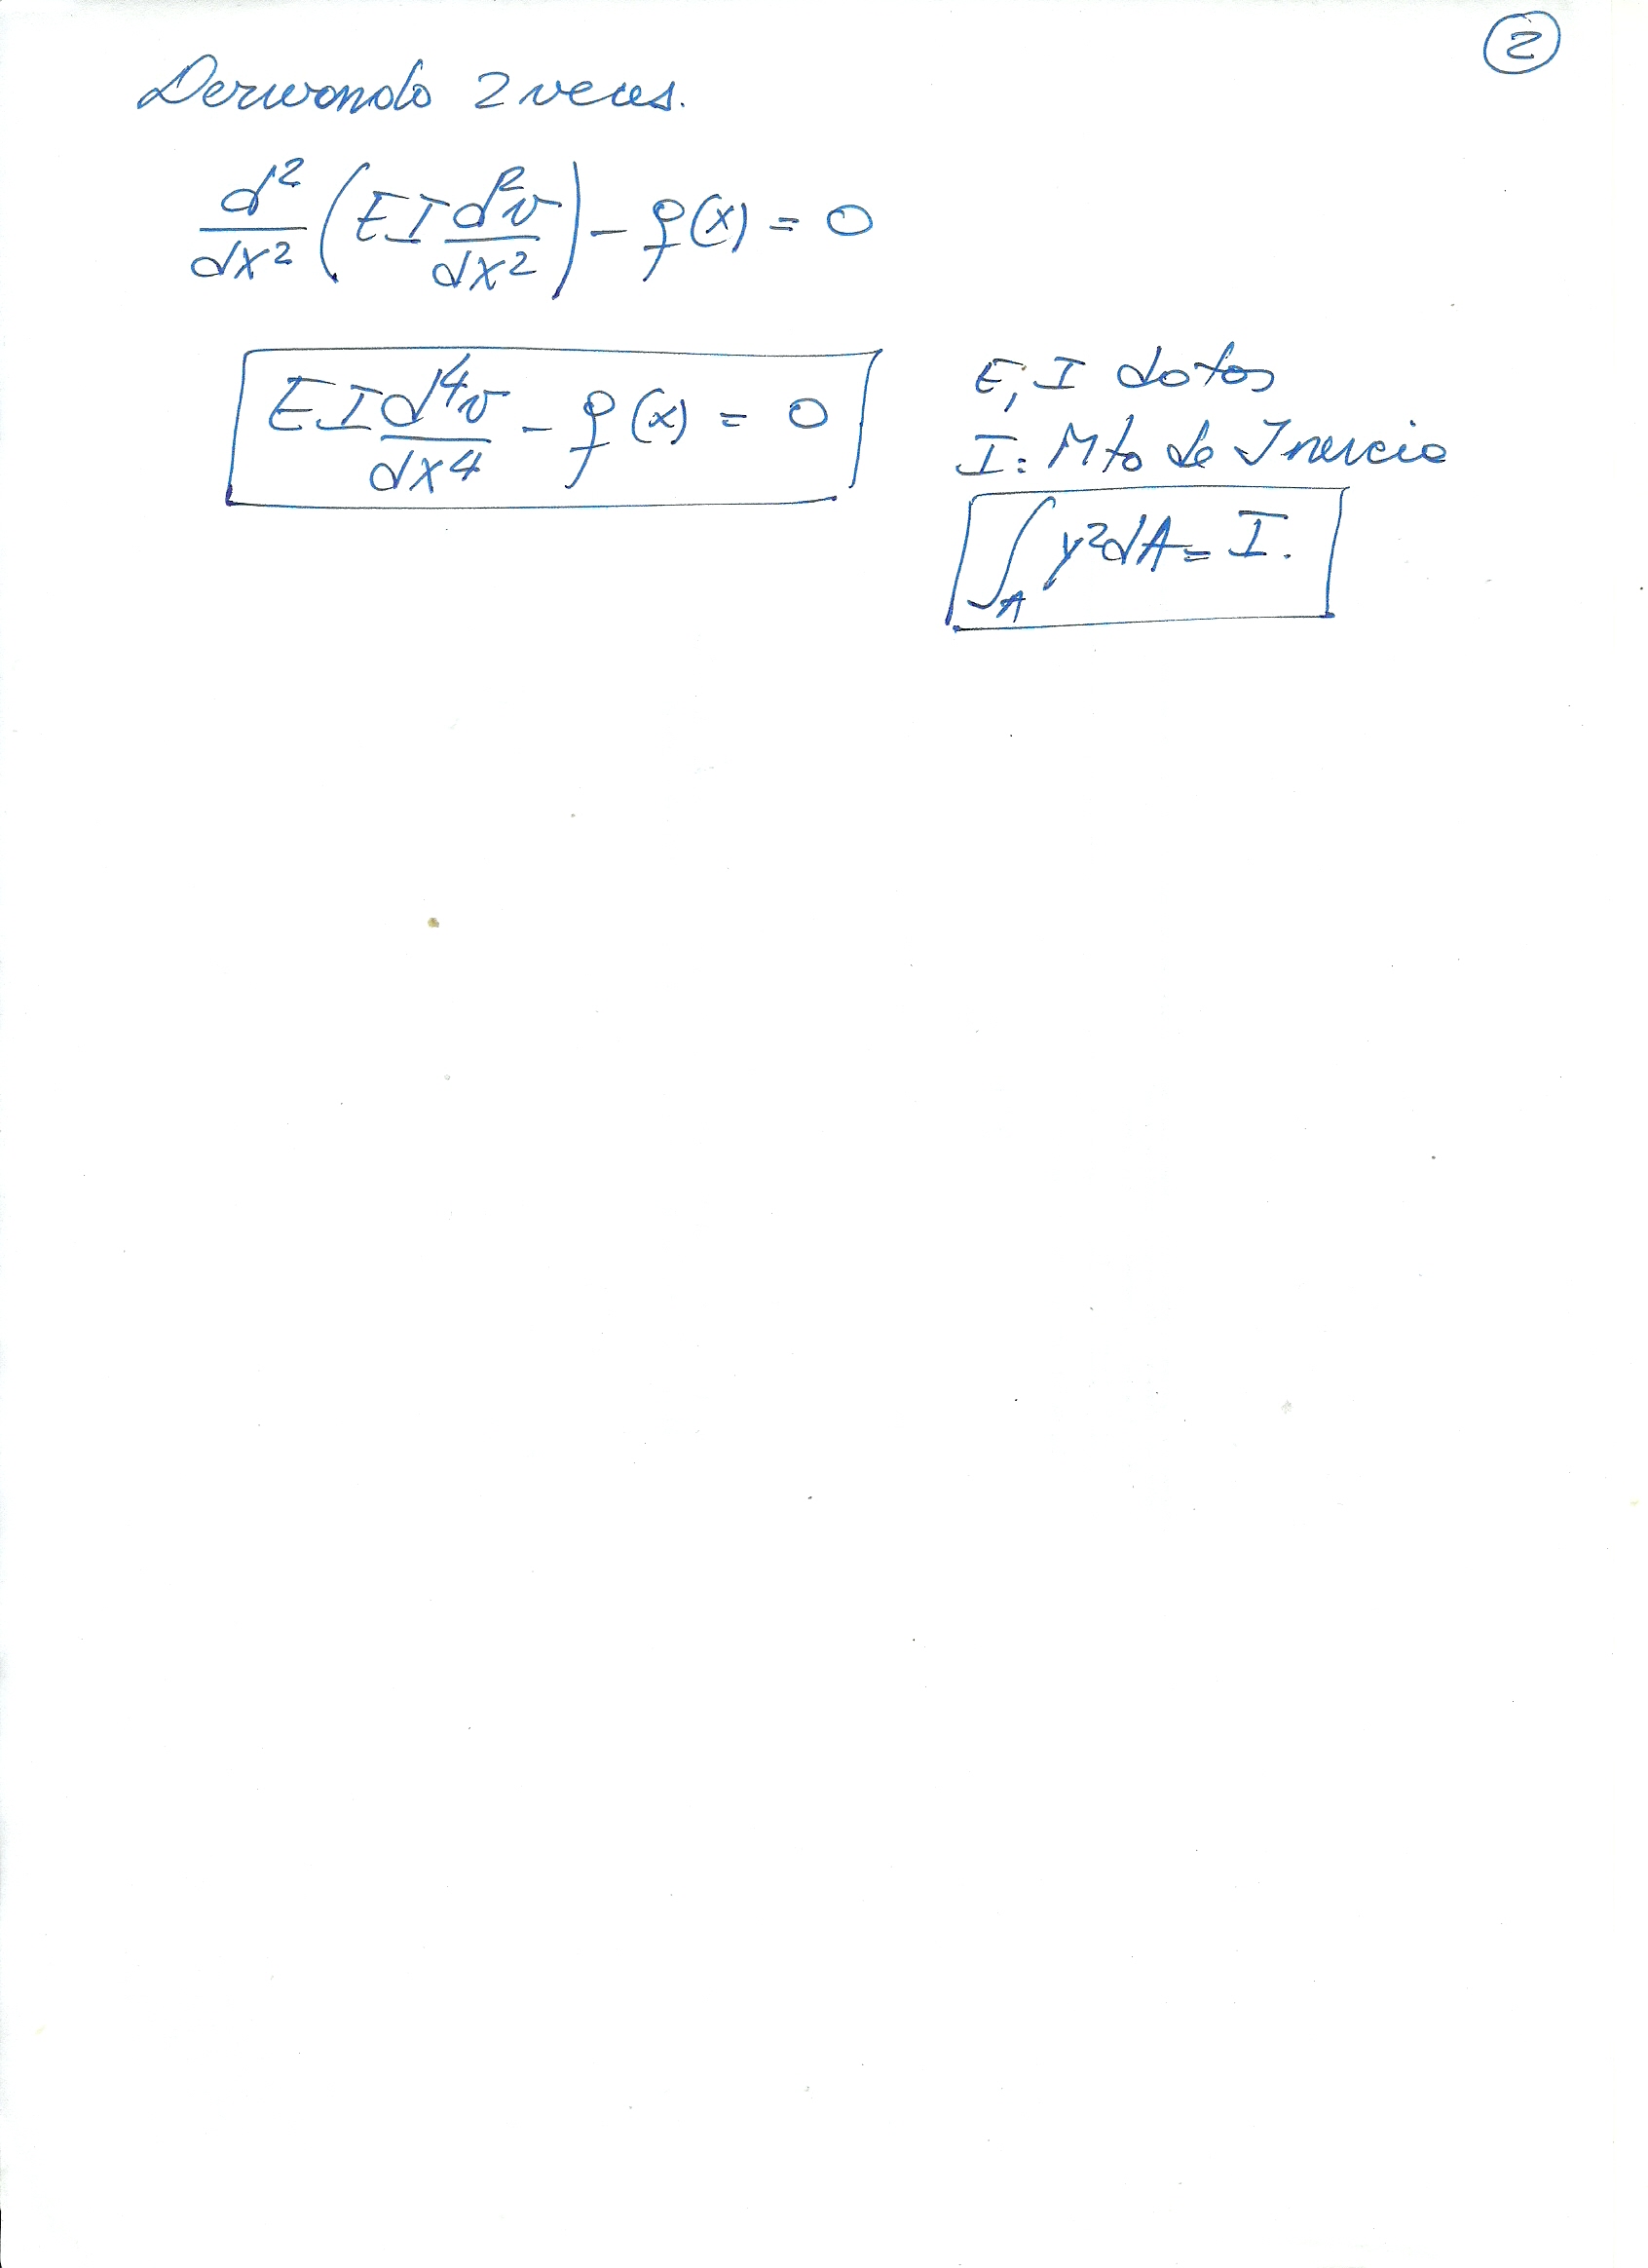 ②
Derivando 2 veces.
d²/dx² (EI d²v/dx²) - q(x) = 0
EI d⁴v/dx⁴ - q(x) = 0
E, I datos
I: Mto de Inercia
∫_A y²dA = I.